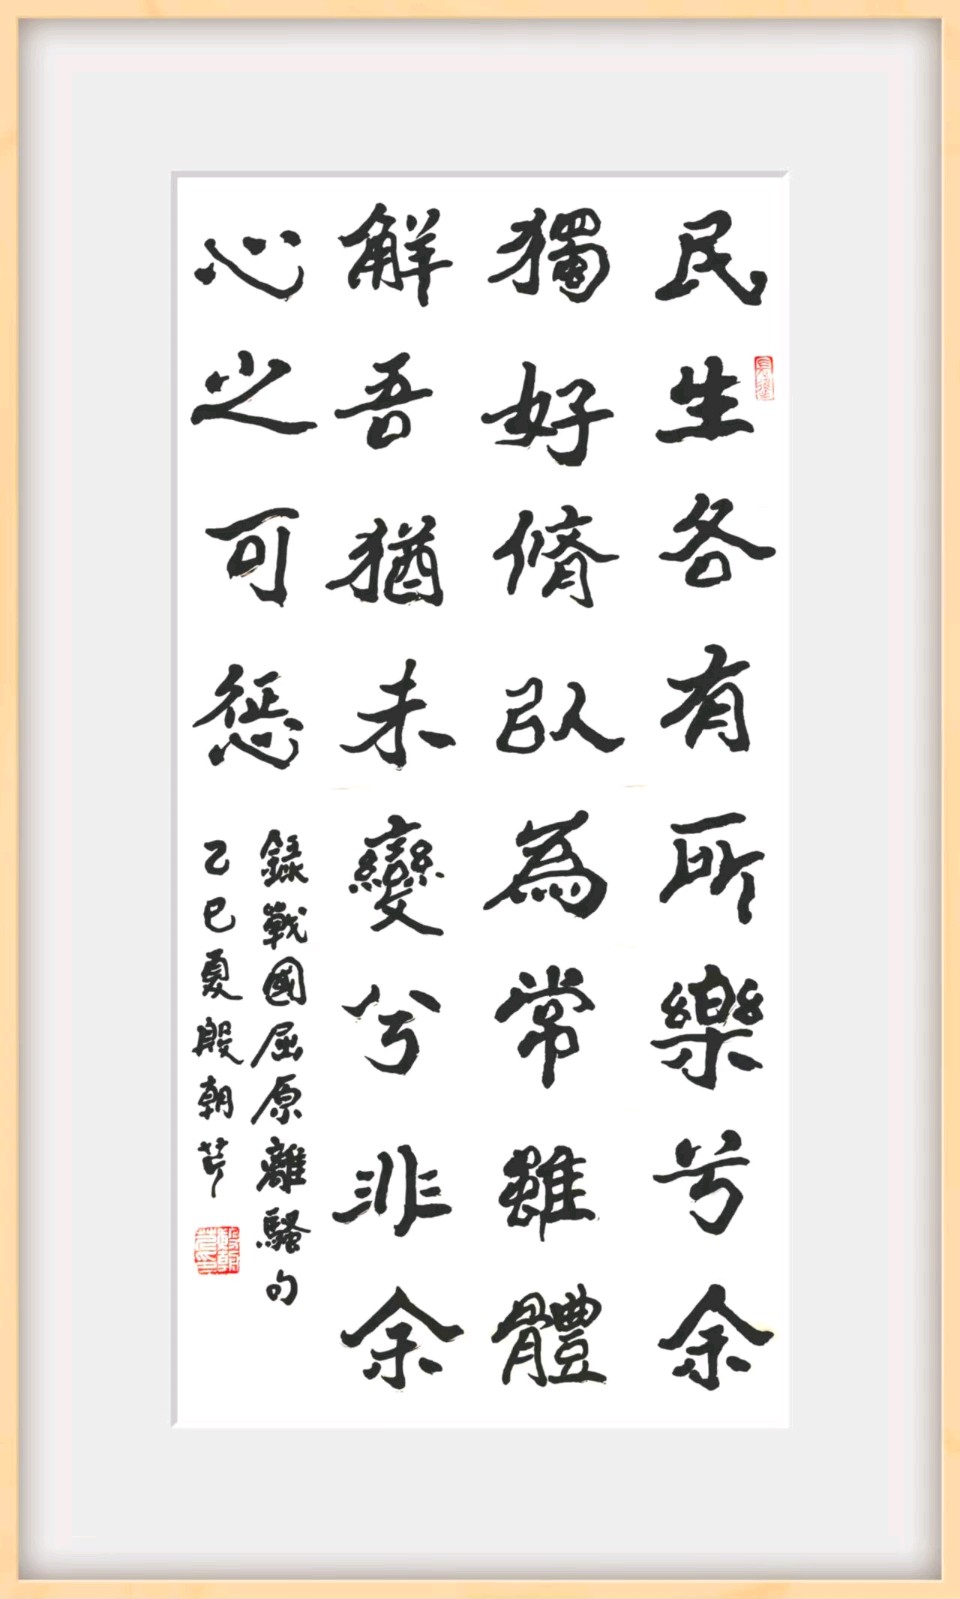 民生各有所樂兮余
獨好脩以為常雖體
解吾猶未變兮非余
心之可懲
錄戰國屈原離騷句
乙巳夏殷朝芹